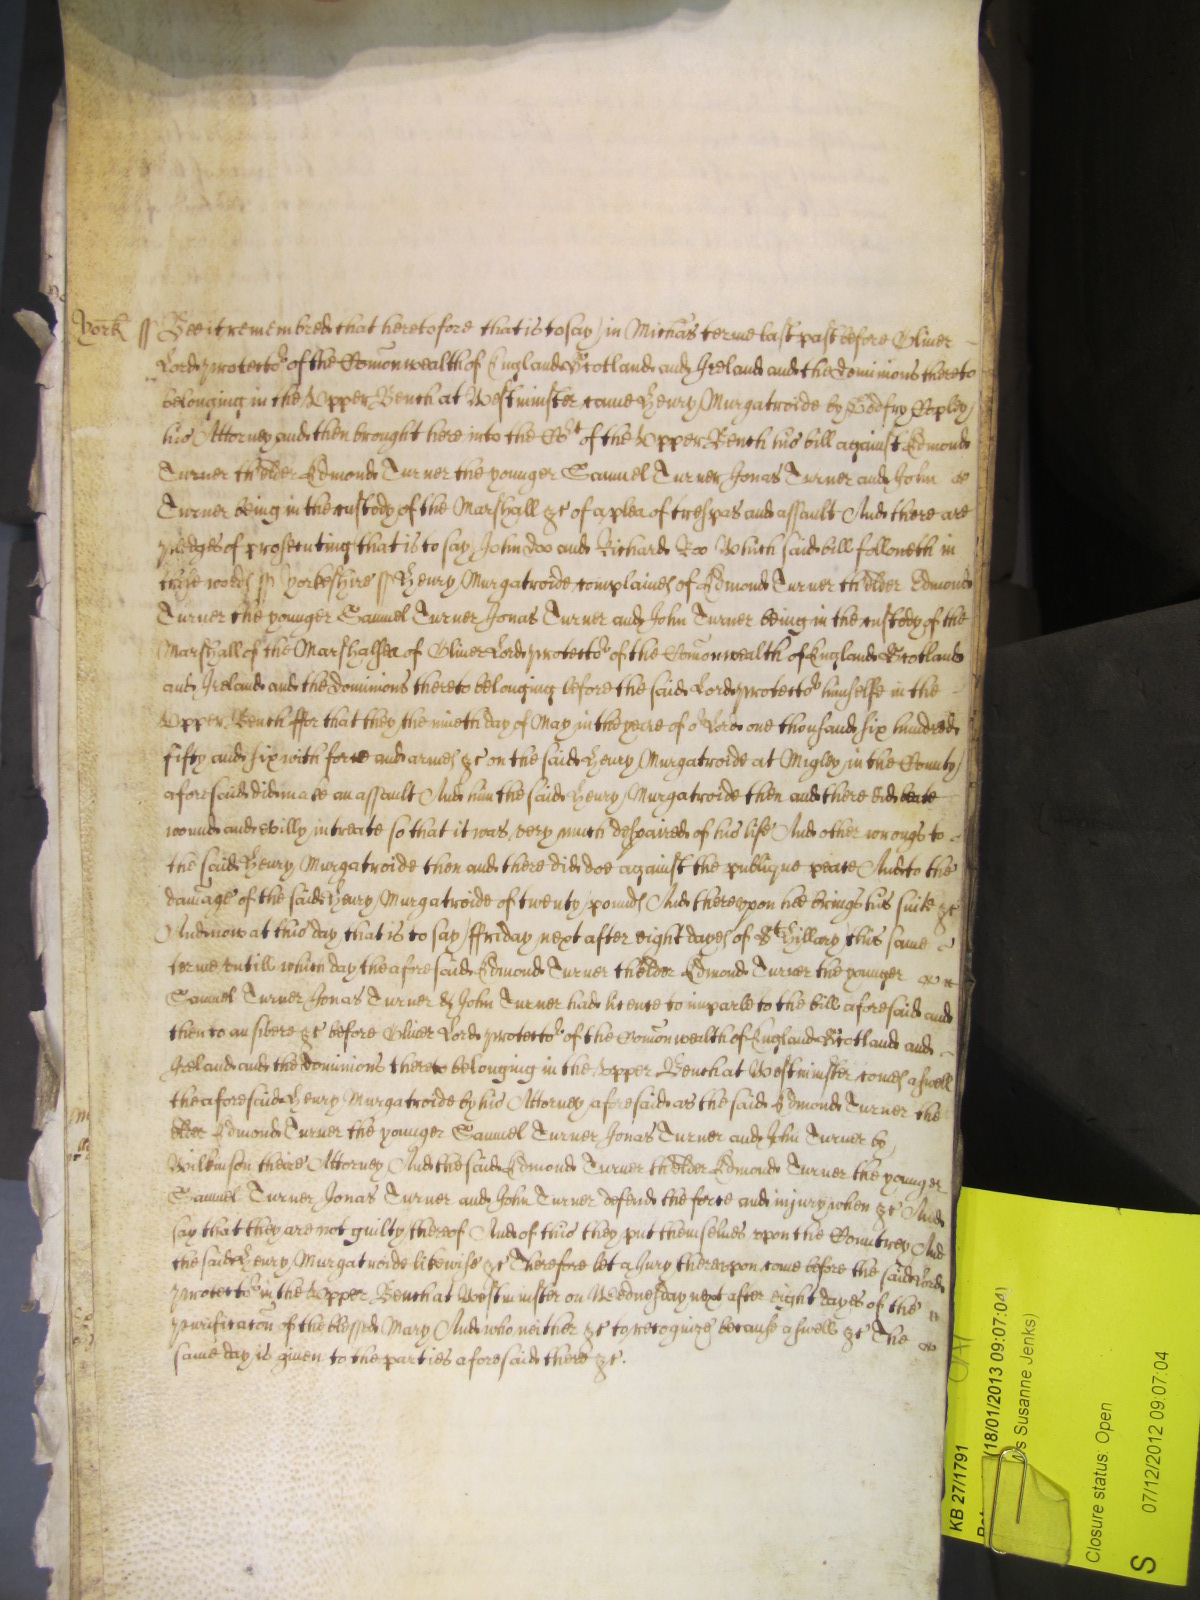 York ss Bee it remembred that heretofore that is to say in Michas terme last past before Oliver
Lord protector of the Comonwealth of England Scotland and Ireland and the dominions thereto
belonging in the Upper Bench at Westminster came Henry Murgatroide by Godfry Copley
his Attorney and then brought here into the Crt of the Upper Bench his bill against Edmond
Turner thelder Edmond Turner the younger Samuel Turner Jonas Turner and John
Turner being in the custody of the Marshall &c of a plea of trespas and assault And there are
pledges of prosecuting that is to say John Doo and Richard Roo Which said bill followeth in
these words ss Yorkeshire ss Henry Murgatroide complaines of Edmond Turner thelder Edmond
Turner the younger Samuel Turner Jonas Turner and John Turner being in the custody of the
Marshall of the Marshalsea of Oliver Lord protector of the Comonwealth of England Scotland
and Ireland and the dominions thereto belonging before the said Lord protector himselfe in the
Upper Bench ffor that they the nineth day of May in the yeare of or Lord one thousand six hundred
fifty and six with force and armes &c on the said Henry Murgatroide at Migley in the County
aforesaid did make an assault And him the said Henry Murgatroide then and there did beate
wound and evilly intreate so that it was very much despaired of his life And other wrongs to
the said Henry Murgatroide then and there did doe against the publique peace And to the
damage of the said Henry Murgatroide of twenty pounds And thereupon hee brings his suite &c
And now at this day that is to say ffriday next after eight dayes of St Hillary this same
terme untill which day the aforesaid Edmond Turner thelder Edmond Turner the younger
Samuel Turner Jonas Turner & John Turner had licence to imparle to the bill aforesaid and
then to answere &c before Oliver Lord protector of the Comonwealth of England Scotland and
Ireland and the dominions thereto belonging in the Upper Bench at Westminster comes aswell
the aforesaid Henry Murgatroide by his Attorney aforesaid as the said Edmond Turner the
elder Edmond Turner the younger Samuel Turner Jonas Turner and John Turner by
Wilkinson theire Attorney And the said Edmond Turner thelder Edmond Turner the younger
Samuel Turner Jonas Turner and John Turner defend the force and injury when &c And
say that they are not guilty thereof And of this they put themselves upon the Countrey And
the said Henry Murgatroide likewise &c Therefore let a Jury thereupon come before the said Lord
protector in the Upper Bench at Westminster on Wednesday next after eight dayes of the
purificaton of the blessed Mary And who neither &c to recognize because aswell &c The
same day is given to the parties aforesaid there &c.
KB 27/1791
(18/01/2013 09:07:04)
s Susanne Jenks)
Closure status: Open
S 07/12/2012 09:07:04